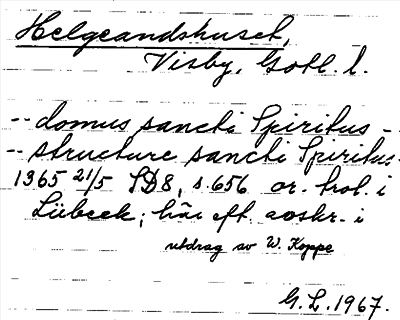 Helgeandshuset,
Visby, Gotl. l.
-- domus sancti Spiritus --
-- structure sancti Spiritus
1365 21/5 SD 8, s. 656 or. trol. i
Lübeck; här eft. avskr. i
utdrag av W. Koppe
G. L. 1967.